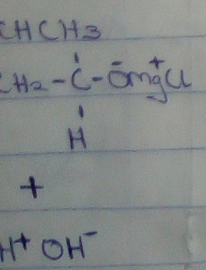 CHCH3
CH2-C-ŌMg⁺Cl
H
+
H⁺ OH⁻